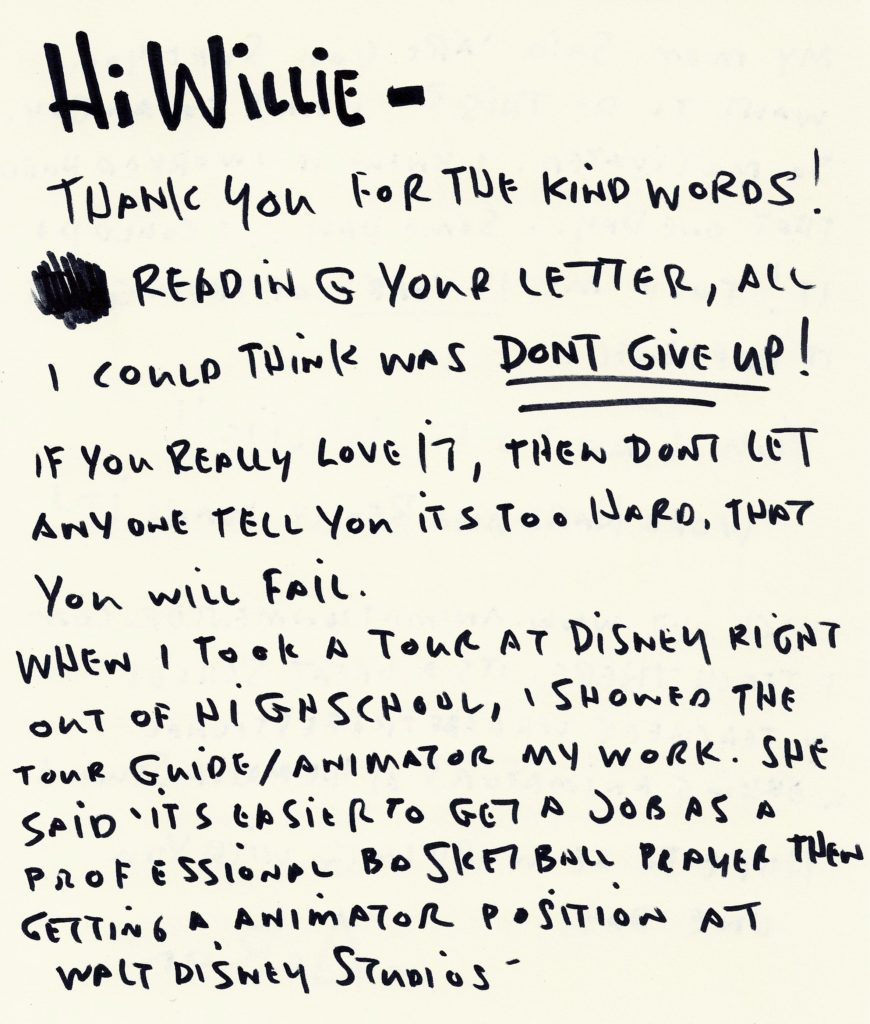 HI WILLIE –
THANK YOU FOR THE KIND WORDS!
READING YOUR LETTER, ALL
I COULD THINK WAS DONT GIVE UP!
IF YOU REALLY LOVE IT, THEN DONT LET
ANYONE TELL YOU ITS TOO HARD. THAT
YOU WILL FAIL.
WHEN I TOOK A TOUR AT DISNEY RIGHT
OUT OF HIGHSCHOOL, I SHOWED THE
TOUR GUIDE/ANIMATOR MY WORK. SHE
SAID 'ITS EASIER TO GET A JOB AS A
PROFESSIONAL BASKETBALL PLAYER THEN
GETTING A ANIMATOR POSITION AT
WALT DISNEY STUDIOS -